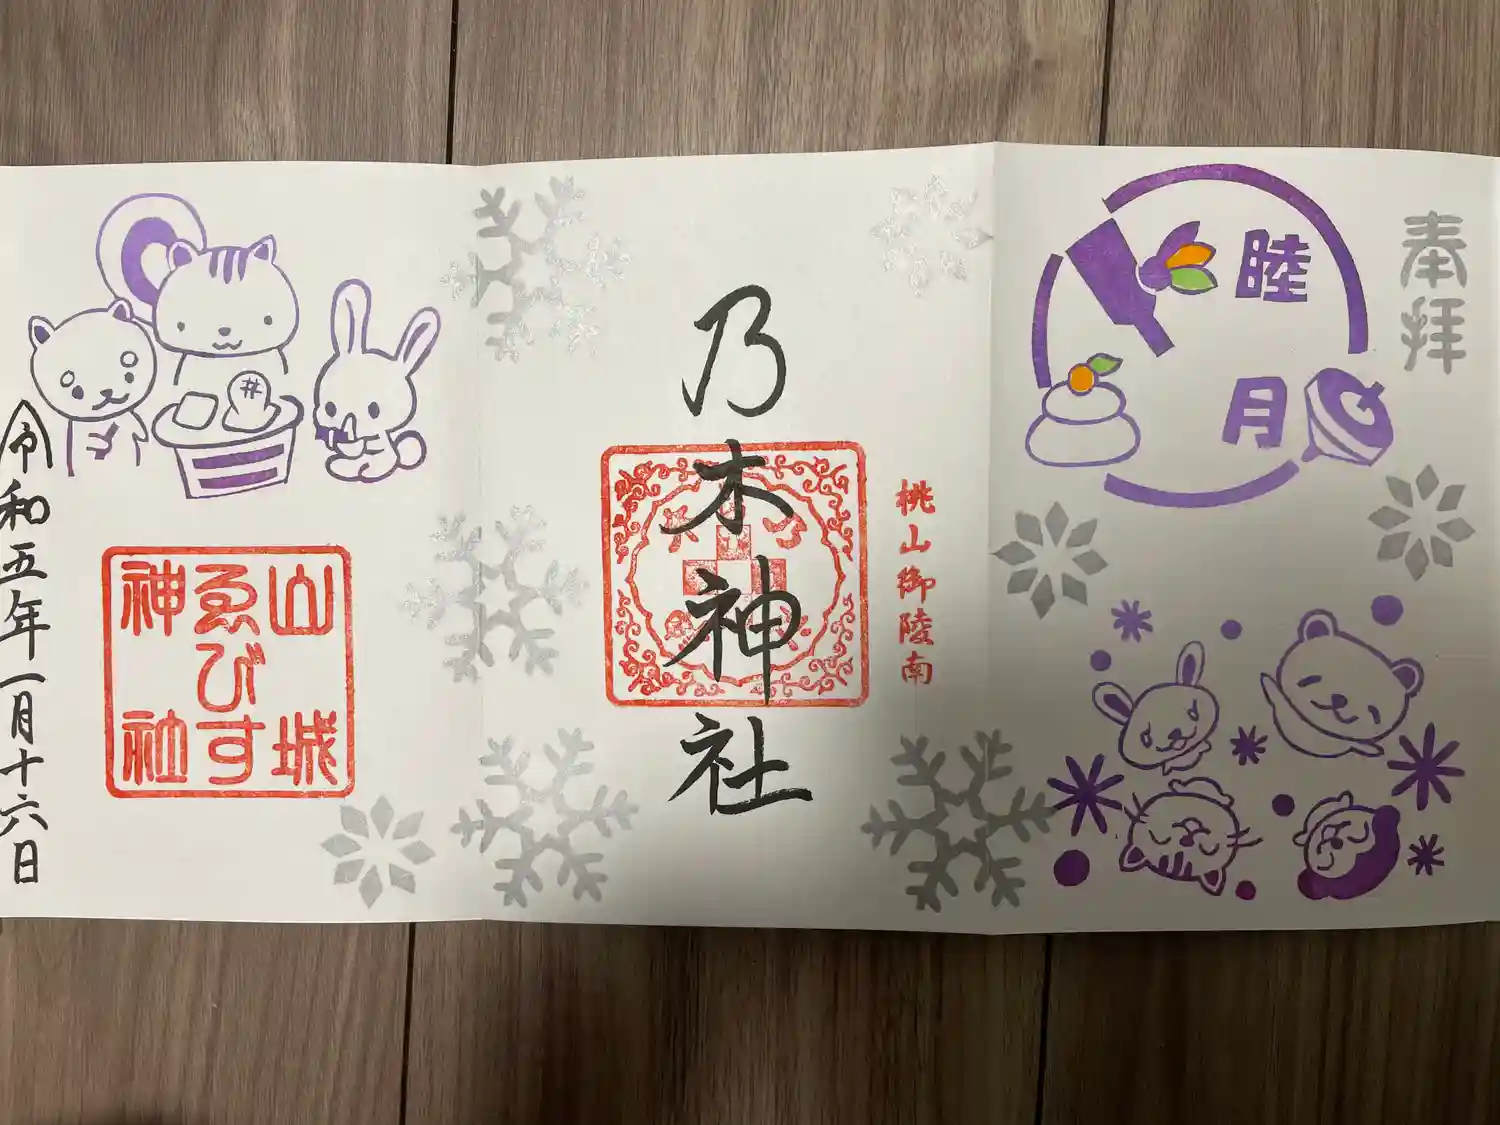 奉拝
睦月
桃山御陵南
乃木神社
山城
ゑびす
神社
令和五年一月十六日